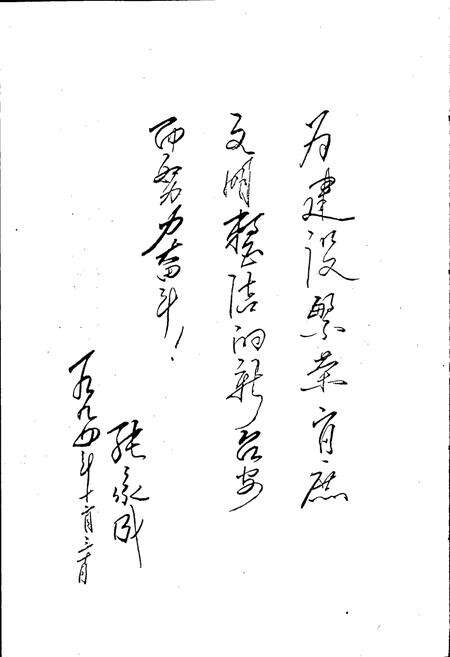 为建设繁荣富庶
文明整洁的新台安
而努力奋斗！
张家成
一九九四年十一月三十日